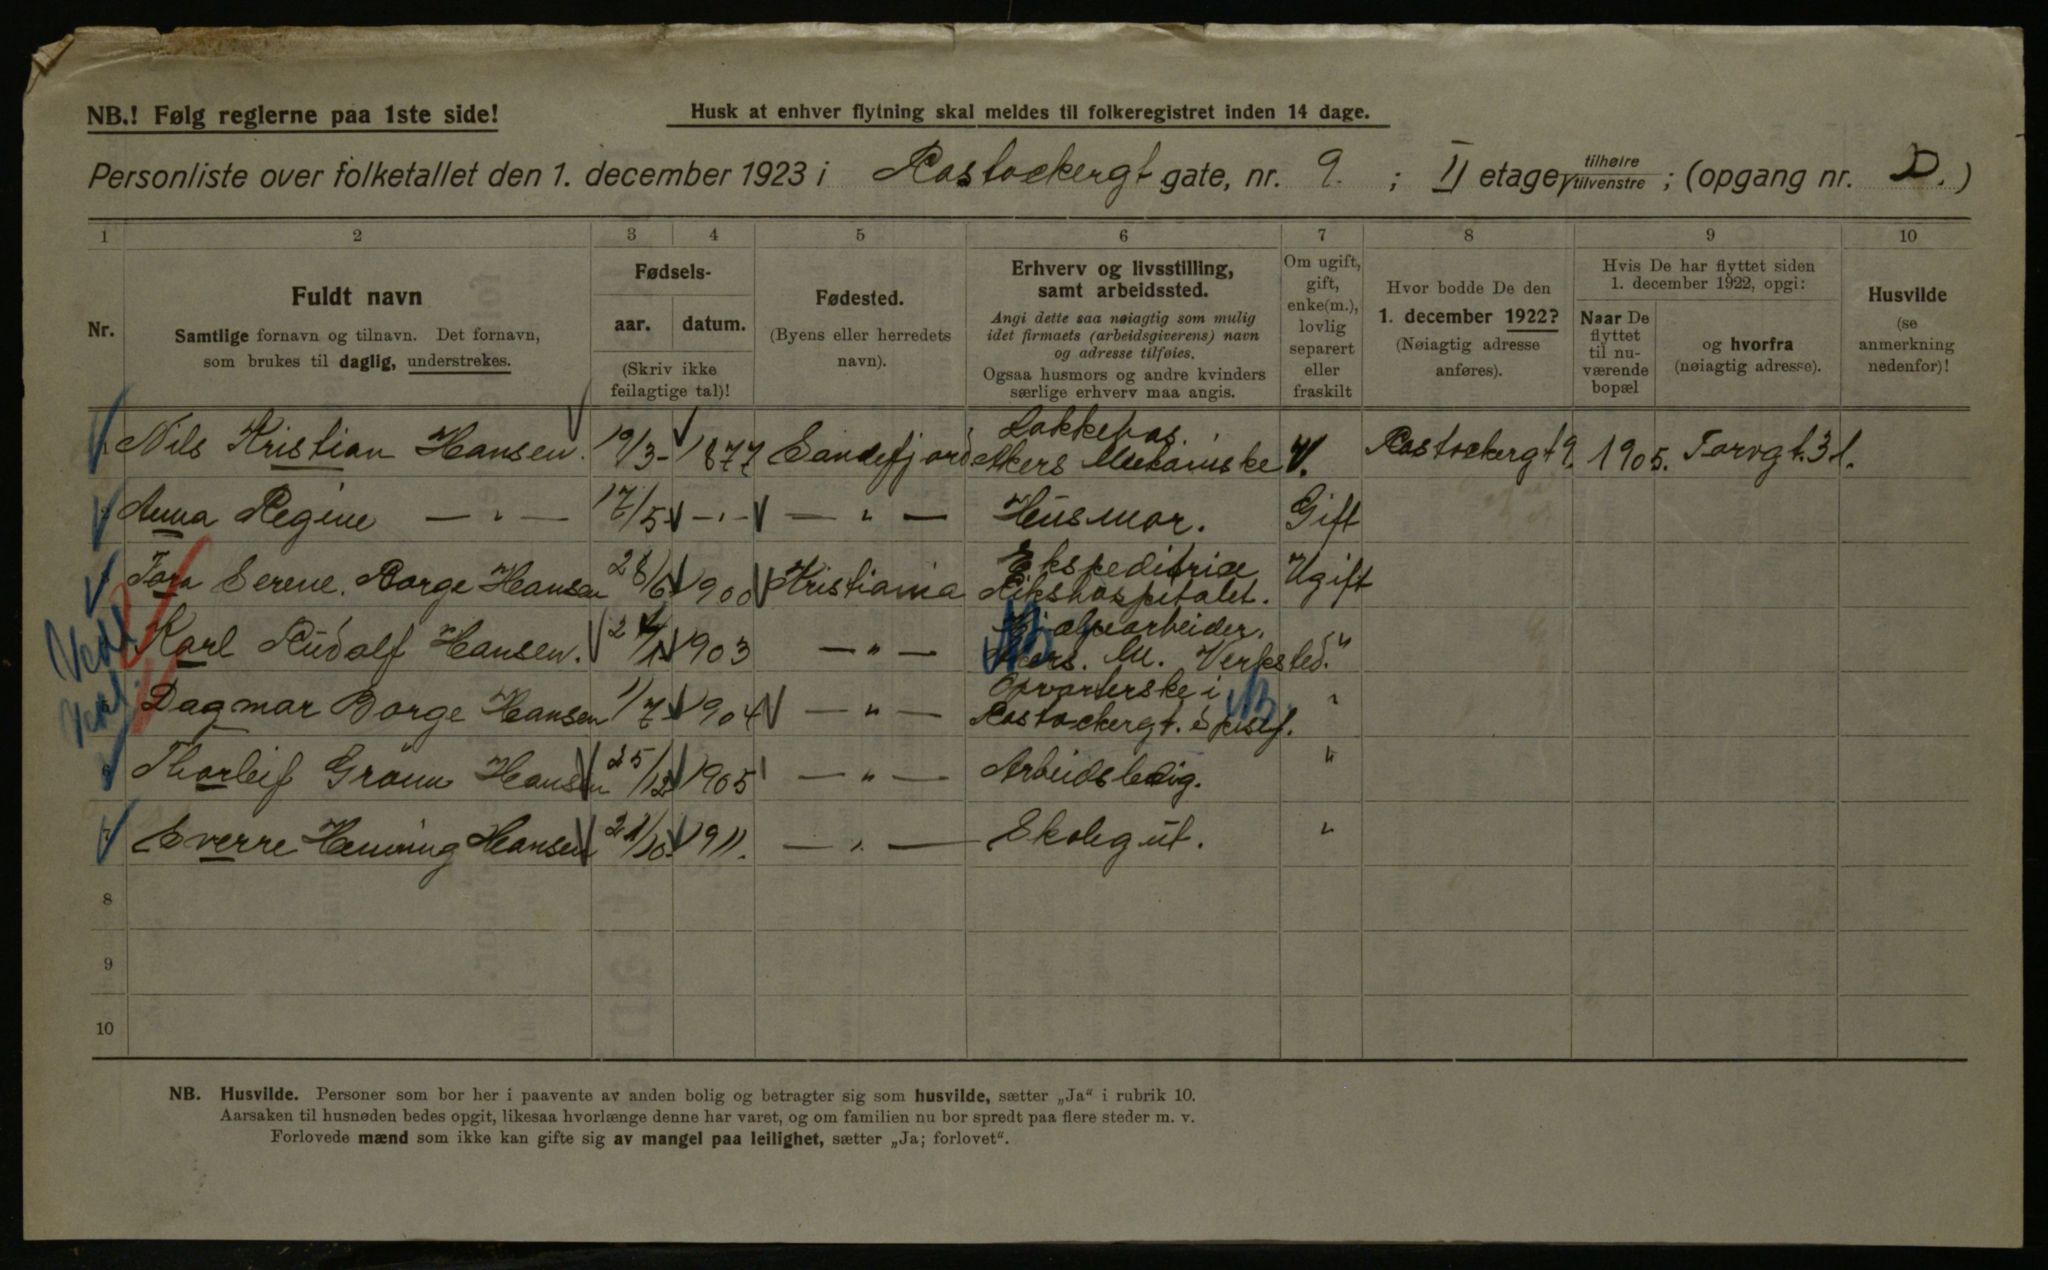 NB.! Følg reglerne paa 1ste side!
Husk at enhver flytning skal meldes til folkeregistret inden 14 dage.
Personliste over folketallet den 1. december 1923 i Rastockergt gate, nr. 9. ; II etage, tilhøire tilvenstre ; (opgang nr. D.)
1 2 3 4 5 6 7 8 9 10
Nr.
Fuldt navn
Samtlige fornavn og tilnavn. Det fornavn,
som brukes til daglig, understrekes.
Fødsels-
aar. datum.
(Skriv ikke
feilagtige tal)!
Fødested.
(Byens eller herredets
navn).
Erhverv og livsstilling,
samt arbeidssted.
Angi dette saa nøiagtig som mulig
idet firmaets (arbeidsgiverens) navn
og adresse tilføies.
Ogsaa husmors og andre kvinders
særlige erhverv maa angis.
Om ugift,
gift,
enke(m.),
lovlig
separert
eller
fraskilt
Hvor bodde De den
1. december 1922?
(Nøiagtig adresse
anføres).
Hvis De har flyttet siden
1. december 1922, opgi:
Naar De
flyttet
til nu-
værende
bopæl
og hvorfra
(nøiagtig adresse).
Husvilde
(se
anmerkning
nedenfor)!
Nils Kristian Hansen. 19/3- 1877 Sandefjord Akers Mekaniske Rastockergt 9. 1905. Torvgt. 31.
Anna Regine — " — 17/5 — " — — " — Husmor. Gift
Tora Serene. Borge Hansen 28/6 1900 Kristiania Ekspeditrice Rikshospitalet. Ugift
Karl Rudolf Hansen. 1903 — " — Hjælpearbeider. Akers. M. Verksted. "
5 Dagmar Borge Hansen 1/7 1904 — " — Opvarterske i Rastockergt. "
6 Thorleif Hansen 25/12 1905 — " — Arbeidsledig. "
7 Sverre Henning Hansen 1911. — " — Skolegut. "
8
9
10
NB. Husvilde. Personer som bor her i paavente av anden bolig og betragter sig som husvilde, sætter „Ja“ i rubrik 10.
Aarsaken til husnøden bedes opgit, likesaa hvorlænge denne har varet, og om familien nu bor spredt paa flere steder m. v.
Forlovede mænd som ikke kan gifte sig av mangel paa leilighet, sætter „Ja; forlovet“.